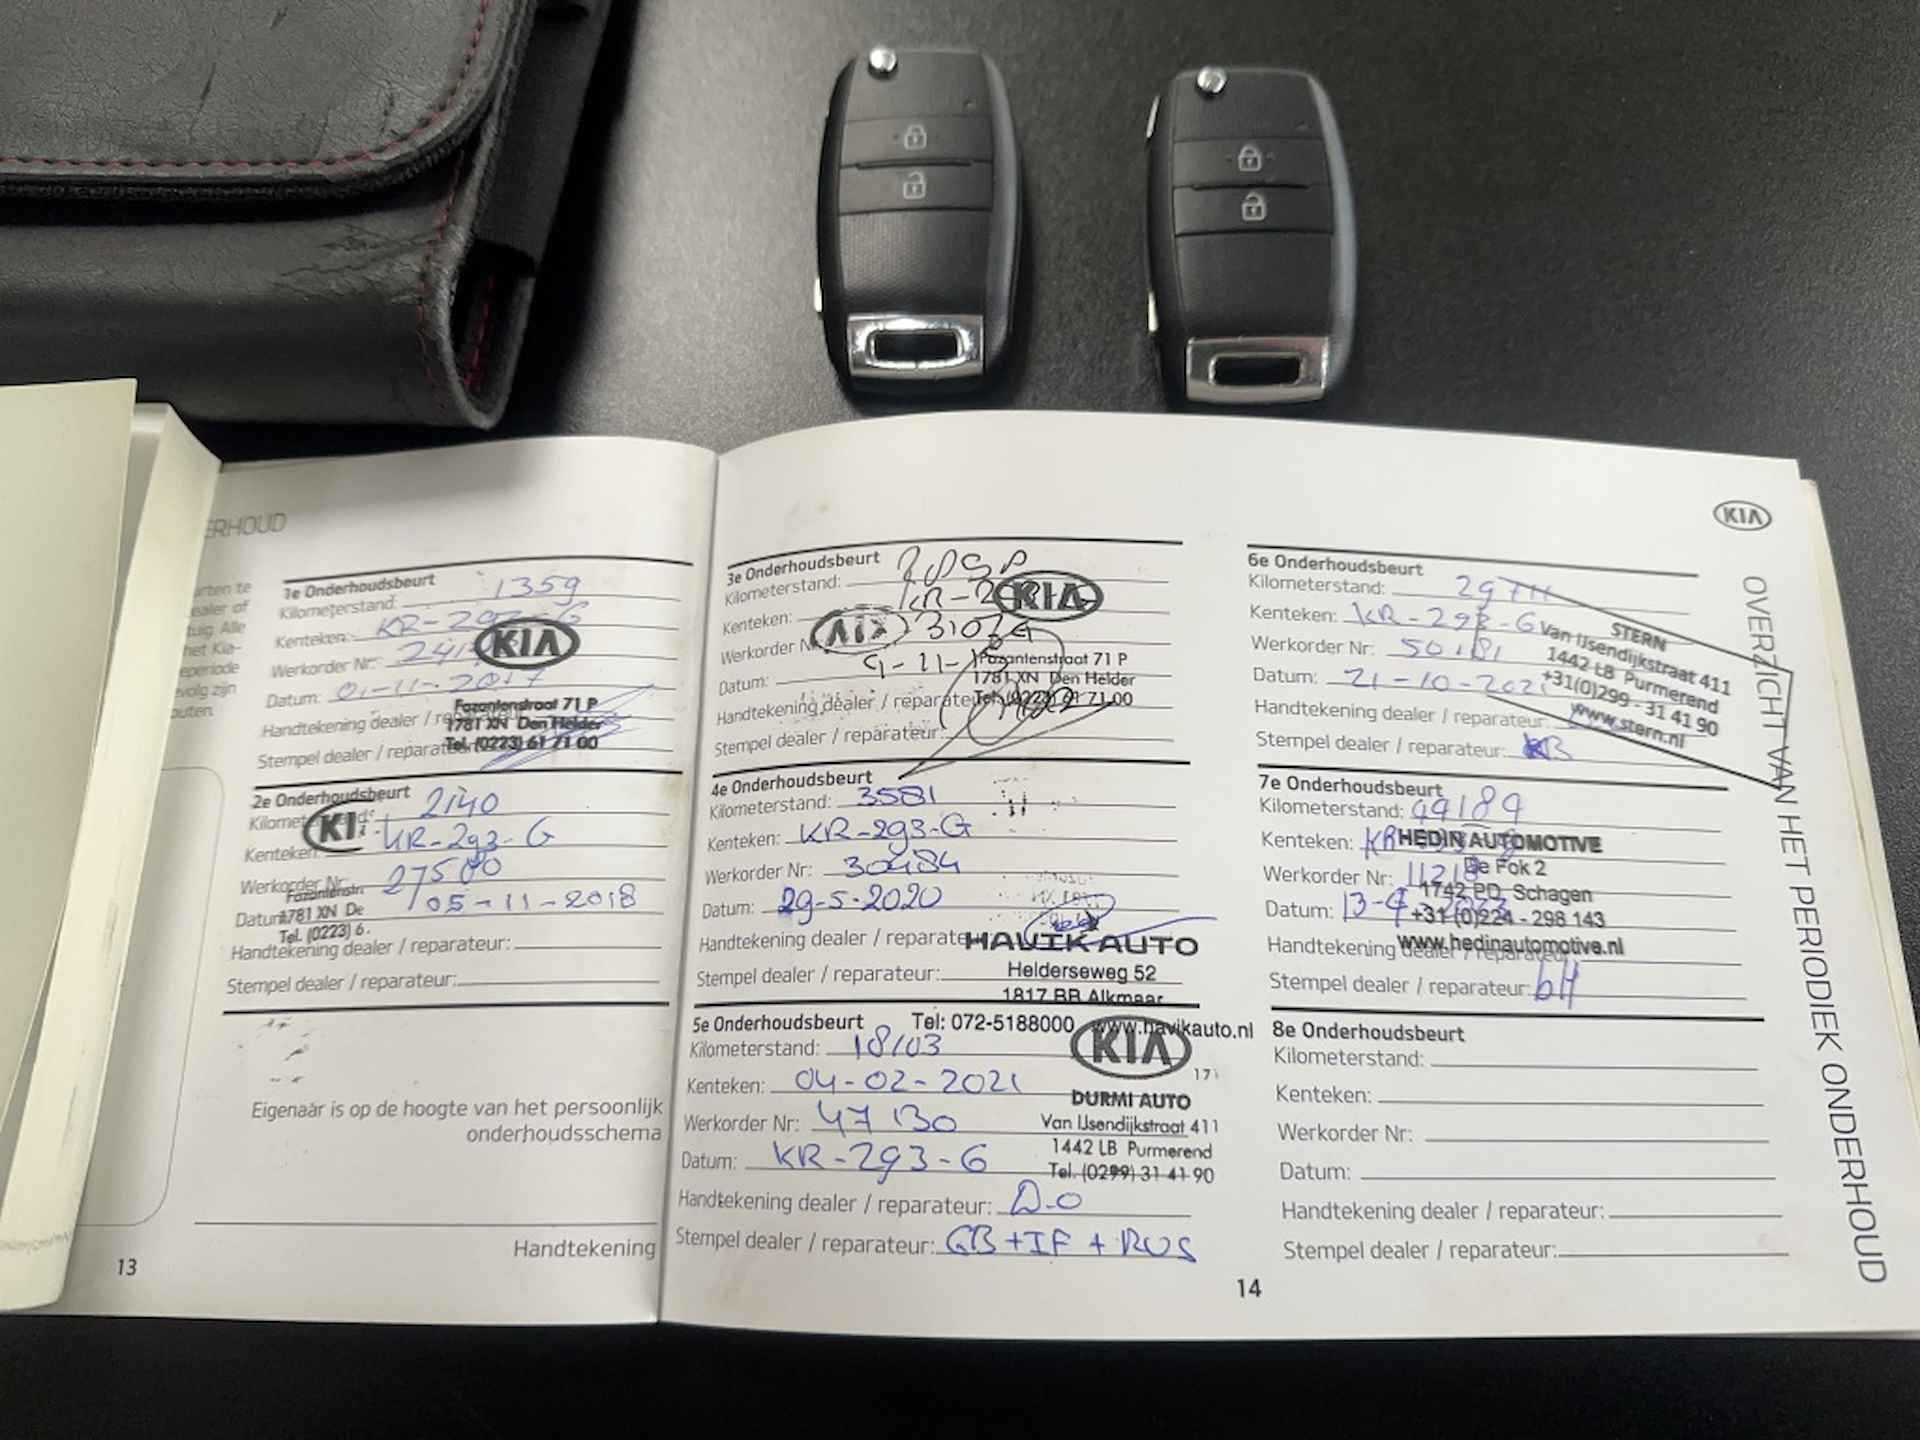 ERHOUD
arten te
ealer of
tuig. Alle
het Kia-
eperiode
evolg zijn
outen.
1e Onderhoudsbeurt
Kilometerstand: 1359
Kenteken: KR-293-G
KIA
Werkorder Nr.:
Datum: 01-11-2017
Fazantenstraat 71 P
Handtekening dealer / reparateur:
1781 XN Den Helder
Stempel dealer / reparateur:
Tel. (0223) 61 71 00
2e Onderhoudsbeurt
Kilometerstand: 2140
KI
Kenteken: KR-293-G
Werkorder Nr.: 27500
Fazantenstr
Datum: 05-11-2018
1781 XN De
Tel. (0223) 6.
Handtekening dealer / reparateur:
Stempel dealer / reparateur:
Eigenaar is op de hoogte van het persoonlijk
onderhoudsschema
Handtekening
13
3e Onderhoudsbeurt
Kilometerstand:
Kenteken:
KIA
Werkorder Nr.:
Datum:
Fazantenstraat 71 P
1781 XN Den Helder
Handtekening dealer / reparateur:
Tel. (0223) 61 71 00
Stempel dealer / reparateur:
4e Onderhoudsbeurt
Kilometerstand: 3581
Kenteken: KR-293-G
Werkorder Nr: 30484
Datum: 29-5-2020
Handtekening dealer / reparateur:
HAVIK AUTO
Stempel dealer / reparateur:
Helderseweg 52
1817 BR Alkmaar
Tel: 072-5188000 www.havikauto.nl
5e Onderhoudsbeurt
Kilometerstand: 18103
KIA
Kenteken: 04-02-2021
DURMI AUTO
Werkorder Nr: 47130
Van IJsendijkstraat 411
1442 LB Purmerend
Datum: KR-293-G
Tel. (0299) 31 41 90
Handtekening dealer / reparateur: D.O
Stempel dealer / reparateur: GB+IF+RUS
14
KIA
6e Onderhoudsbeurt
Kilometerstand:
Kenteken: KR-293-G
Werkorder Nr: 50181
Datum: 21-10-2021
Handtekening dealer / reparateur:
Stempel dealer / reparateur:
STERN
Van IJsendijkstraat 411
1442 LB Purmerend
+31(0)299 - 31 41 90
www.stern.nl
7e Onderhoudsbeurt
Kilometerstand: 49189
Kenteken:
HEDIN AUTOMOTIVE
De Fok 2
Werkorder Nr:
1742 PD Schagen
Datum:
+31 (0)224 - 298 143
www.hedinautomotive.nl
Handtekening dealer / reparateur:
Stempel dealer / reparateur: bH
8e Onderhoudsbeurt
Kilometerstand:
Kenteken:
Werkorder Nr:
Datum:
Handtekening dealer / reparateur:
Stempel dealer / reparateur:
OVERZICHT VAN HET PERIODIEK ONDERHOUD